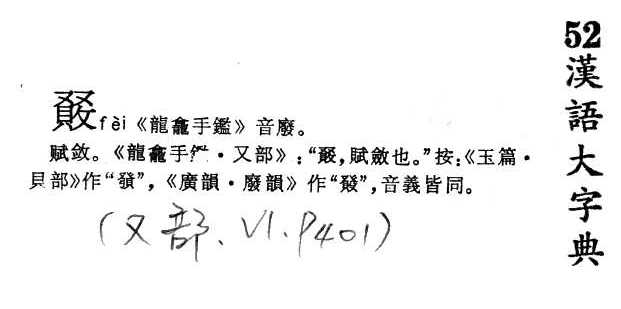 52 漢語大字典
fèi《龍龕手鑑》音廢。
賦斂。《龍龕手鑑·又部》:“,賦斂也。”按:《玉篇·
貝部》作“”,《廣韻·廢韻》作“”,音義皆同。
(又部、VI.P401)